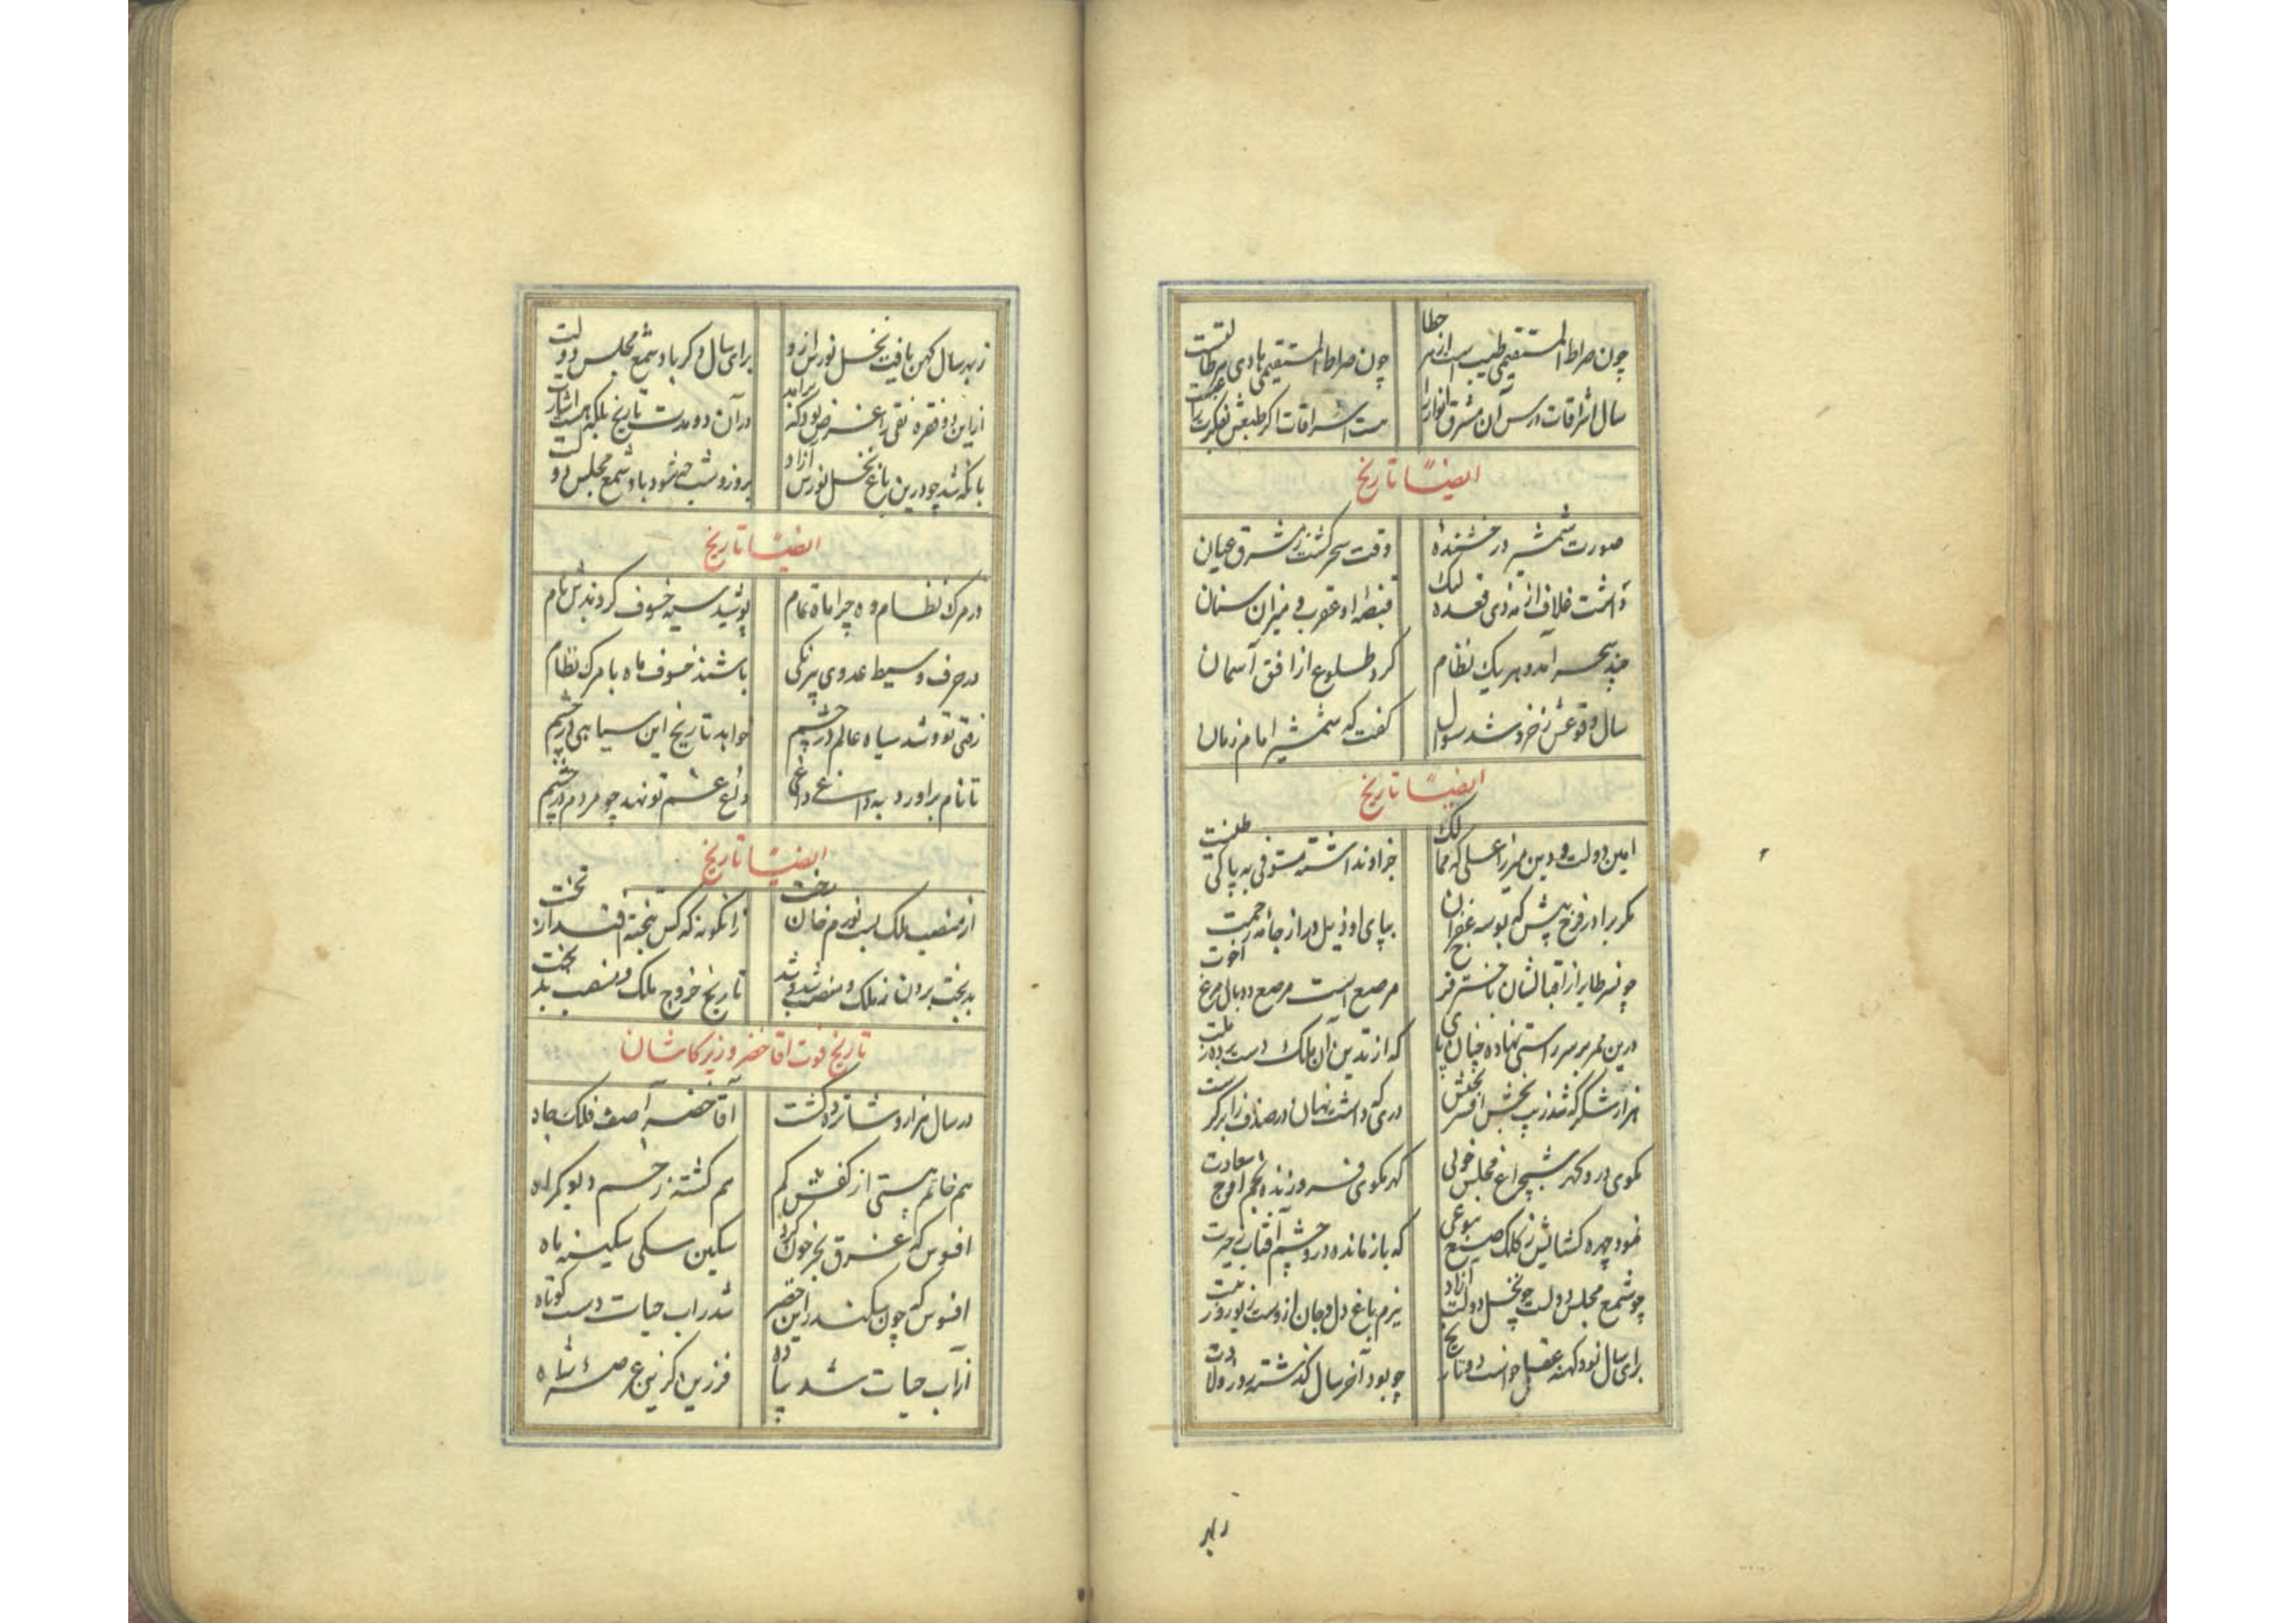 چون صراط المستقیمی طیب است از هر خطا
چون صراط المستقیمی هادی هر طالبست
سال اشراقات درس آن مشرق انوار را
هست اشراقات اکر طبعش تفکر
ایضًا تاریخ
صورت شمشیر درخشندهٔ
وقت سحر کشت ز مشرق عیان
داشت خلاف از مه ذی قعده لیک
قبضهٔ او عقرب و میزان سنان
چند سحر آمد و هر یک نظام
کرد طلوع از افق آسمان
سال وقوعش ز خرد شد سوال
کفت که شمشیر امام زمان
ایضًا تاریخ
امین دولت و دین میرزا علی که ممالک
چو او نداشته مستوفی به پاکی طینت
مکر برادر فرخ پیش که بوسه غفران
بپای او ذیل دراز جامه رحمت
چو نسر طایر از اقبالشان باختر فر
مرصع است مرصع دو بال مرغ اخوت
درین ممر بسر راستی نهاده چنان پای
که از تدین آن ملک دست برده ز ملت
هزار شکر که شد زیب بخش افسر بختش
دری که داشت نهان در صدف
نکوی در و کهر شبچراغ مجلس خوبی
کهر نکوی فروزنده نجم اوج سعادت
نمود چهره کشائیش ز کلک صنع بنوعی
که باز مانده درو چشم آفتاب ز حیرت
چو شمع مجلس دولت چو نخل دولت آزاد
ببزم باغ دل و جان ازوست
برای سال نو و کهنه عقل خواست دو تاریخ
چو بود آخر سال کذشته روز ولادت
ز بهر
ز بهر سال کهن یافت نخل نورس ازو
برای سال دکر باد شمع مجلس دولت
از این دو فقره نقی را غرض بود که برآمد
در آن دو مدت تاریخ بلکه هست اشارت
بانکه شد چو درین باغ نخل نورس آزاد
بروز و شب چه شود باد شمع مجلس دولت
ایضًا تاریخ
در مرک نظام وه چرا ماه تمام
پوشید سیه خسوف کردندش نام
در حرف وسیط عدوی بیرنکی
باشند خسوف ماه با مرک نظام
رفتی تو و شد سیاه عالم در چشم
خواهد تاریخ این سیاهی در چشم
تا نام برآورد به داغ داغی
داغ غم تو نهد چو مردم در چشم
ایضًا تاریخ
از منصب ملک بست نورم خان رخت
زانکونه که کس نیفتد از تخت
بدبخت برون ز ملک و منصب شد و شد
تاریخ خروج ملک و منصب بدبخت
تاریخ فوت اقا خضر وزیر کاشان
در سال هزار و شانزده کشت
آقا خضر آصف فلک جاه
هم خاتم هستی از کفش کم
هم کشته ز خم دیو کمراه
افسوس که غرق بحر خون کرد
سکین سکی سکینه ماه
افسوس که چون سکندر این خضر
شد ز آب حیات دست کوتاه
از آب حیات شد پیاده
فرزین اکر زین عرصهٔ شاه